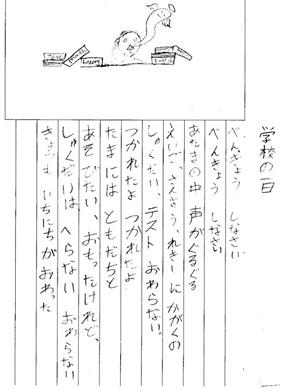 学校の一日
べんきょう しなさい
べんきょう しなさい
あたまの中 声がぐるぐる
えいご、さんすう、れきしにかがくの
しゅくだい、テスト おわらない。
つかれたよ つかれたよ
たまには ともだちと
あそびたい、おもったけれど、
しゅくだいは へらない おわらない
きょうも いちにちが おわった